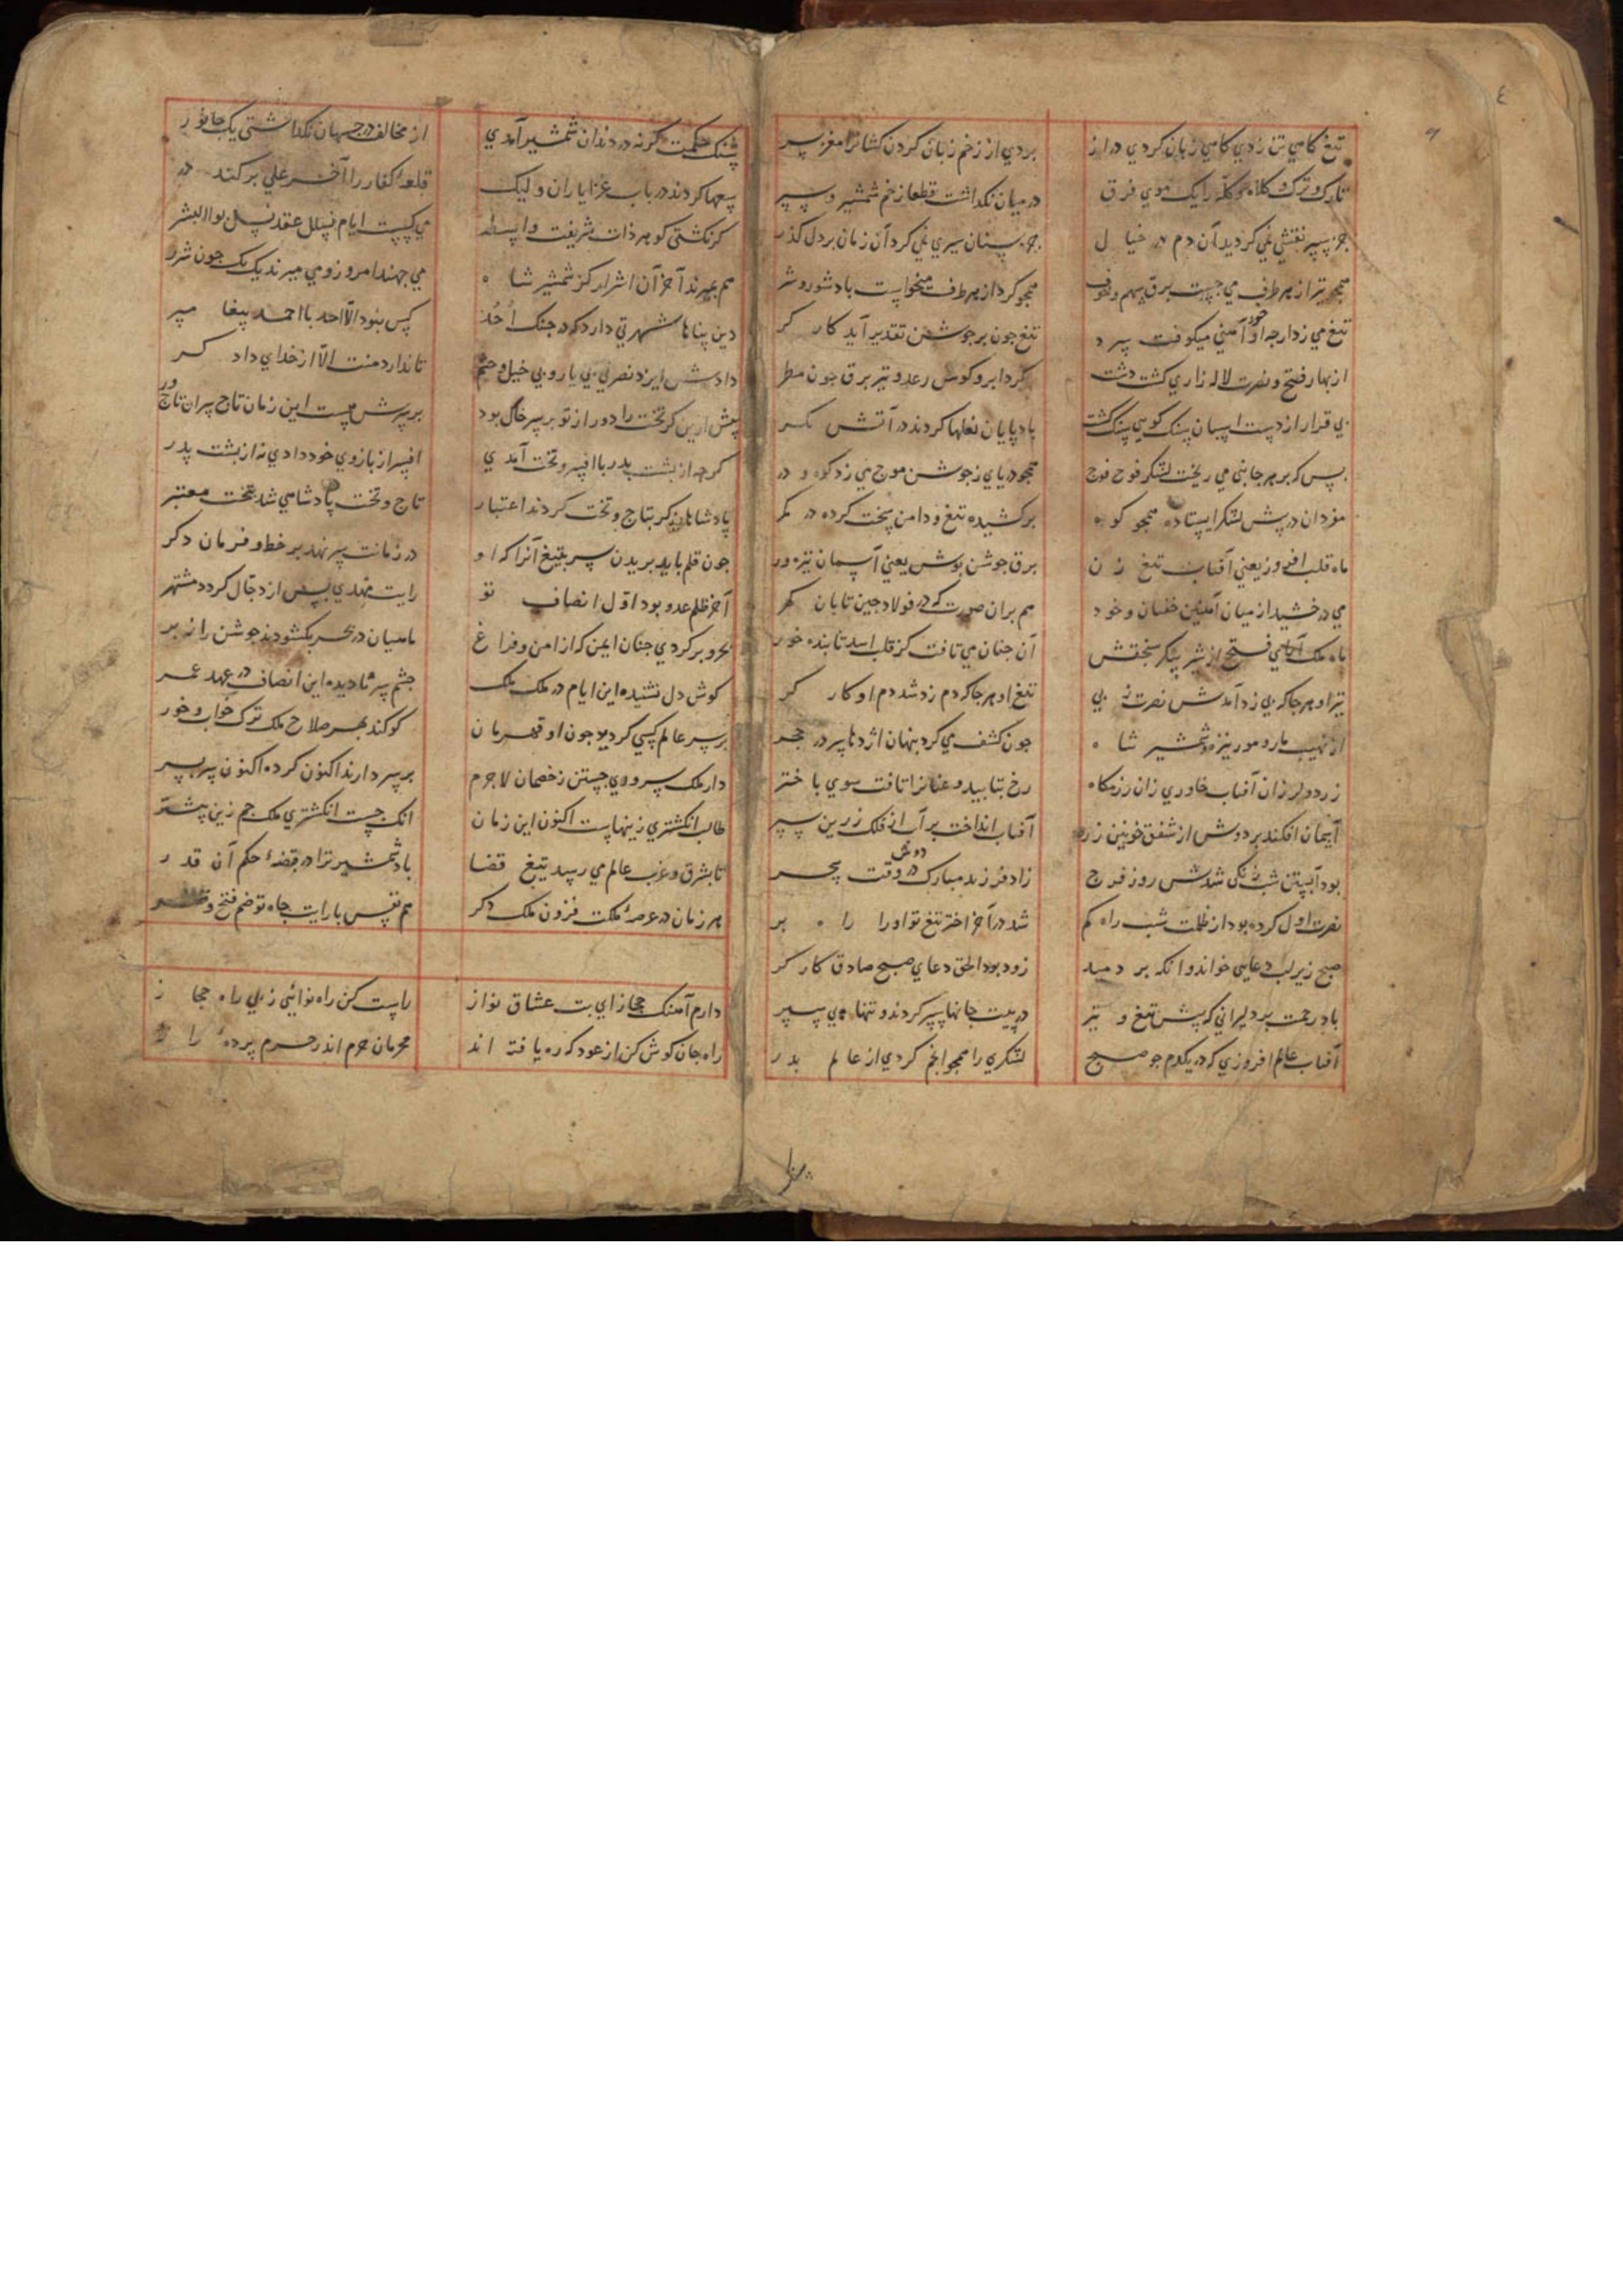 ٤
تیغ کاهی تن زدی کاهی زبان کردی دراز
بردی از زخم زبان کردن کشانرا مغز سر
تارک و ترک و کلاه و کله را یک موی فرق
در میان نکداشت قطعا زخم شمشیر و سپر
جز سپر نقشی نمی کردید آن دم در خیال
جز سنان سیری نمی کرد آن زمان بر دل کذر
همجو تیر از هر طرف می جست برق سهم و خوف
همجو کرد از هر طرف میخواست باد شور و شر
تیغ می زد ارجه او خود آهنی میکوفت سرد
تیغ جون بر جوشن تقدیر آید کارکر
از بهار فتح و نصرت لاله زاری کشت دشت
کرد ابر و کوس رعد و تیر برق جون مطر
بی قرار از دست اسبان سنک کوهی سنک کشت
باد پایان نعلها کردند در آتش مکر
بس که بر هر جانبی می ریخت لشکر فوج فوج
همجو دریای ز جوشن موج می زد کوه و در
مردان در پیش لشکر ایستاده همجو کوه
برکشیده تیغ و دامن سخت کرده در کمر
ماه قلب افروز یعنی آفتاب تیغ زن
برق جوشن پوش یعنی آسمان نیزه ور
می درخشید از میان آهنین خفتان و خود
هم بران صورت که در فولاد جین تابان کهر
ماه ملک آرای فتح از شیر پیکر سنجقش
آن جنان می تافت کز قلب اسد تابنده خور
تیر او هر جا که پی زد آمدش نصرت ز پی
تیغ او هر جا که دم زد شد دم او کارکر
از نهیب مار و مور نیزه و شمشیر شاه
جون کشف می کرد پنهان اژدها سر در حجر
زرد و لرزان آفتاب خاوری زان رزمکاه
رخ بتابید و عنانرا تافت سوی باختر
آسمان افکند بر دوش از شفق خونین زره
آفتاب انداخت بر آب از فلک زرین سپر
بود آبستن شب زنکی شدش روز فرج
زاد فرزند مبارک دوش در وقت سحر
نصرت اول کرده بود از ظلمت شب راه کم
شد در آخر اختر تیغ تو او را راه بر
صبح زیر لب دعایی خواند و آنکه بر دمید
زود بود الحق دعای صبح صادق کارکر
باد رحمت بر دلیرانی که پیش تیغ و تیر
در پیت جانها سپر کردند و تنها پی سپر
آفتاب عالم افروزی که در یکدم جو صبح
لشکری را همجو انجم کردی از عالم بدر
سنک حکمت کرنه در دندان شمشیر آمدی
از مخالف در جهان نکداشتی یک جانور
سعیها کردند در باب غزا یاران ولیک
قلعه کفار را آخر علی برکند در
کرنکشتی کوهر ذات شریفت واسطه
می کسست ایام نسل عقد نسل بوالبشر
هم بمیرند آخر آن اشرار کز شمشیر شاه
می جهند امروز و می میرند یک یک جون شرر
دین پناها شهرتی دارد که در جنک اُحُد
کس نبود الّا احد با احمد پیغامبر
دادش ایزد نصرتی بی یار و بی خیل و حشم
تا ندارد منت الّا از خدای دادکر
پیش ازین کر تخت را دور از تو بر سر خاک بود
بر سرش هست این زمان تاج سران تاجور
کرجه از پشت پدر با افسر و تخت آمدی
افسر از بازوی خود دادی نه از پشت پدر
پادشاهان کر بتاج و تخت کردند اعتبار
تاج و تخت پادشاهی شد بتخت معتبر
جون قلم باید بریدن سر بتیغ آنرا که او
در زمانت سر نهد بر خط و فرمان دکر
آخر ظلم عدو بود اوّل انصاف تو
رایت مهدی پس از دجّال کردد مشتهر
بحر و بر کردی جنان ایمن که از امن و فراغ
ماهیان در بحر بکشودند جوشن را ز بر
کوش دل نشنیده این ایام در ملک ملک
جشم پیر نا دیده این انصاف در عهد عمر
بر سر عالم کسی کردید جون او قهرمان
کو کند بهر صلاح ملک ترک خواب و خور
دار ملک سروری جستن ز خصمان لاجرم
بر سر دارند اکنون کرده اکنون سر بسر
طالب انکشتری زینهاست اکنون این زمان
آنک جست انکشتری ملک جم زین پیشتر
تا بشرق و غرب عالم می رسد تیغ قضا
باد شمشیر ترا در قبضه حکم آن قدر
هر زمان در عرصه ملکت فزون ملک دکر
هم نفس با رایت جاه تو ضم فتح و ظفر
دارم آهنک حجاز ای بت عشاق نواز
راست کن راه نوائی ز پی راه حجاز
راه جان کوش کن از عود که ره یافته اند
محرمان حرم اندر حرم پرده راز